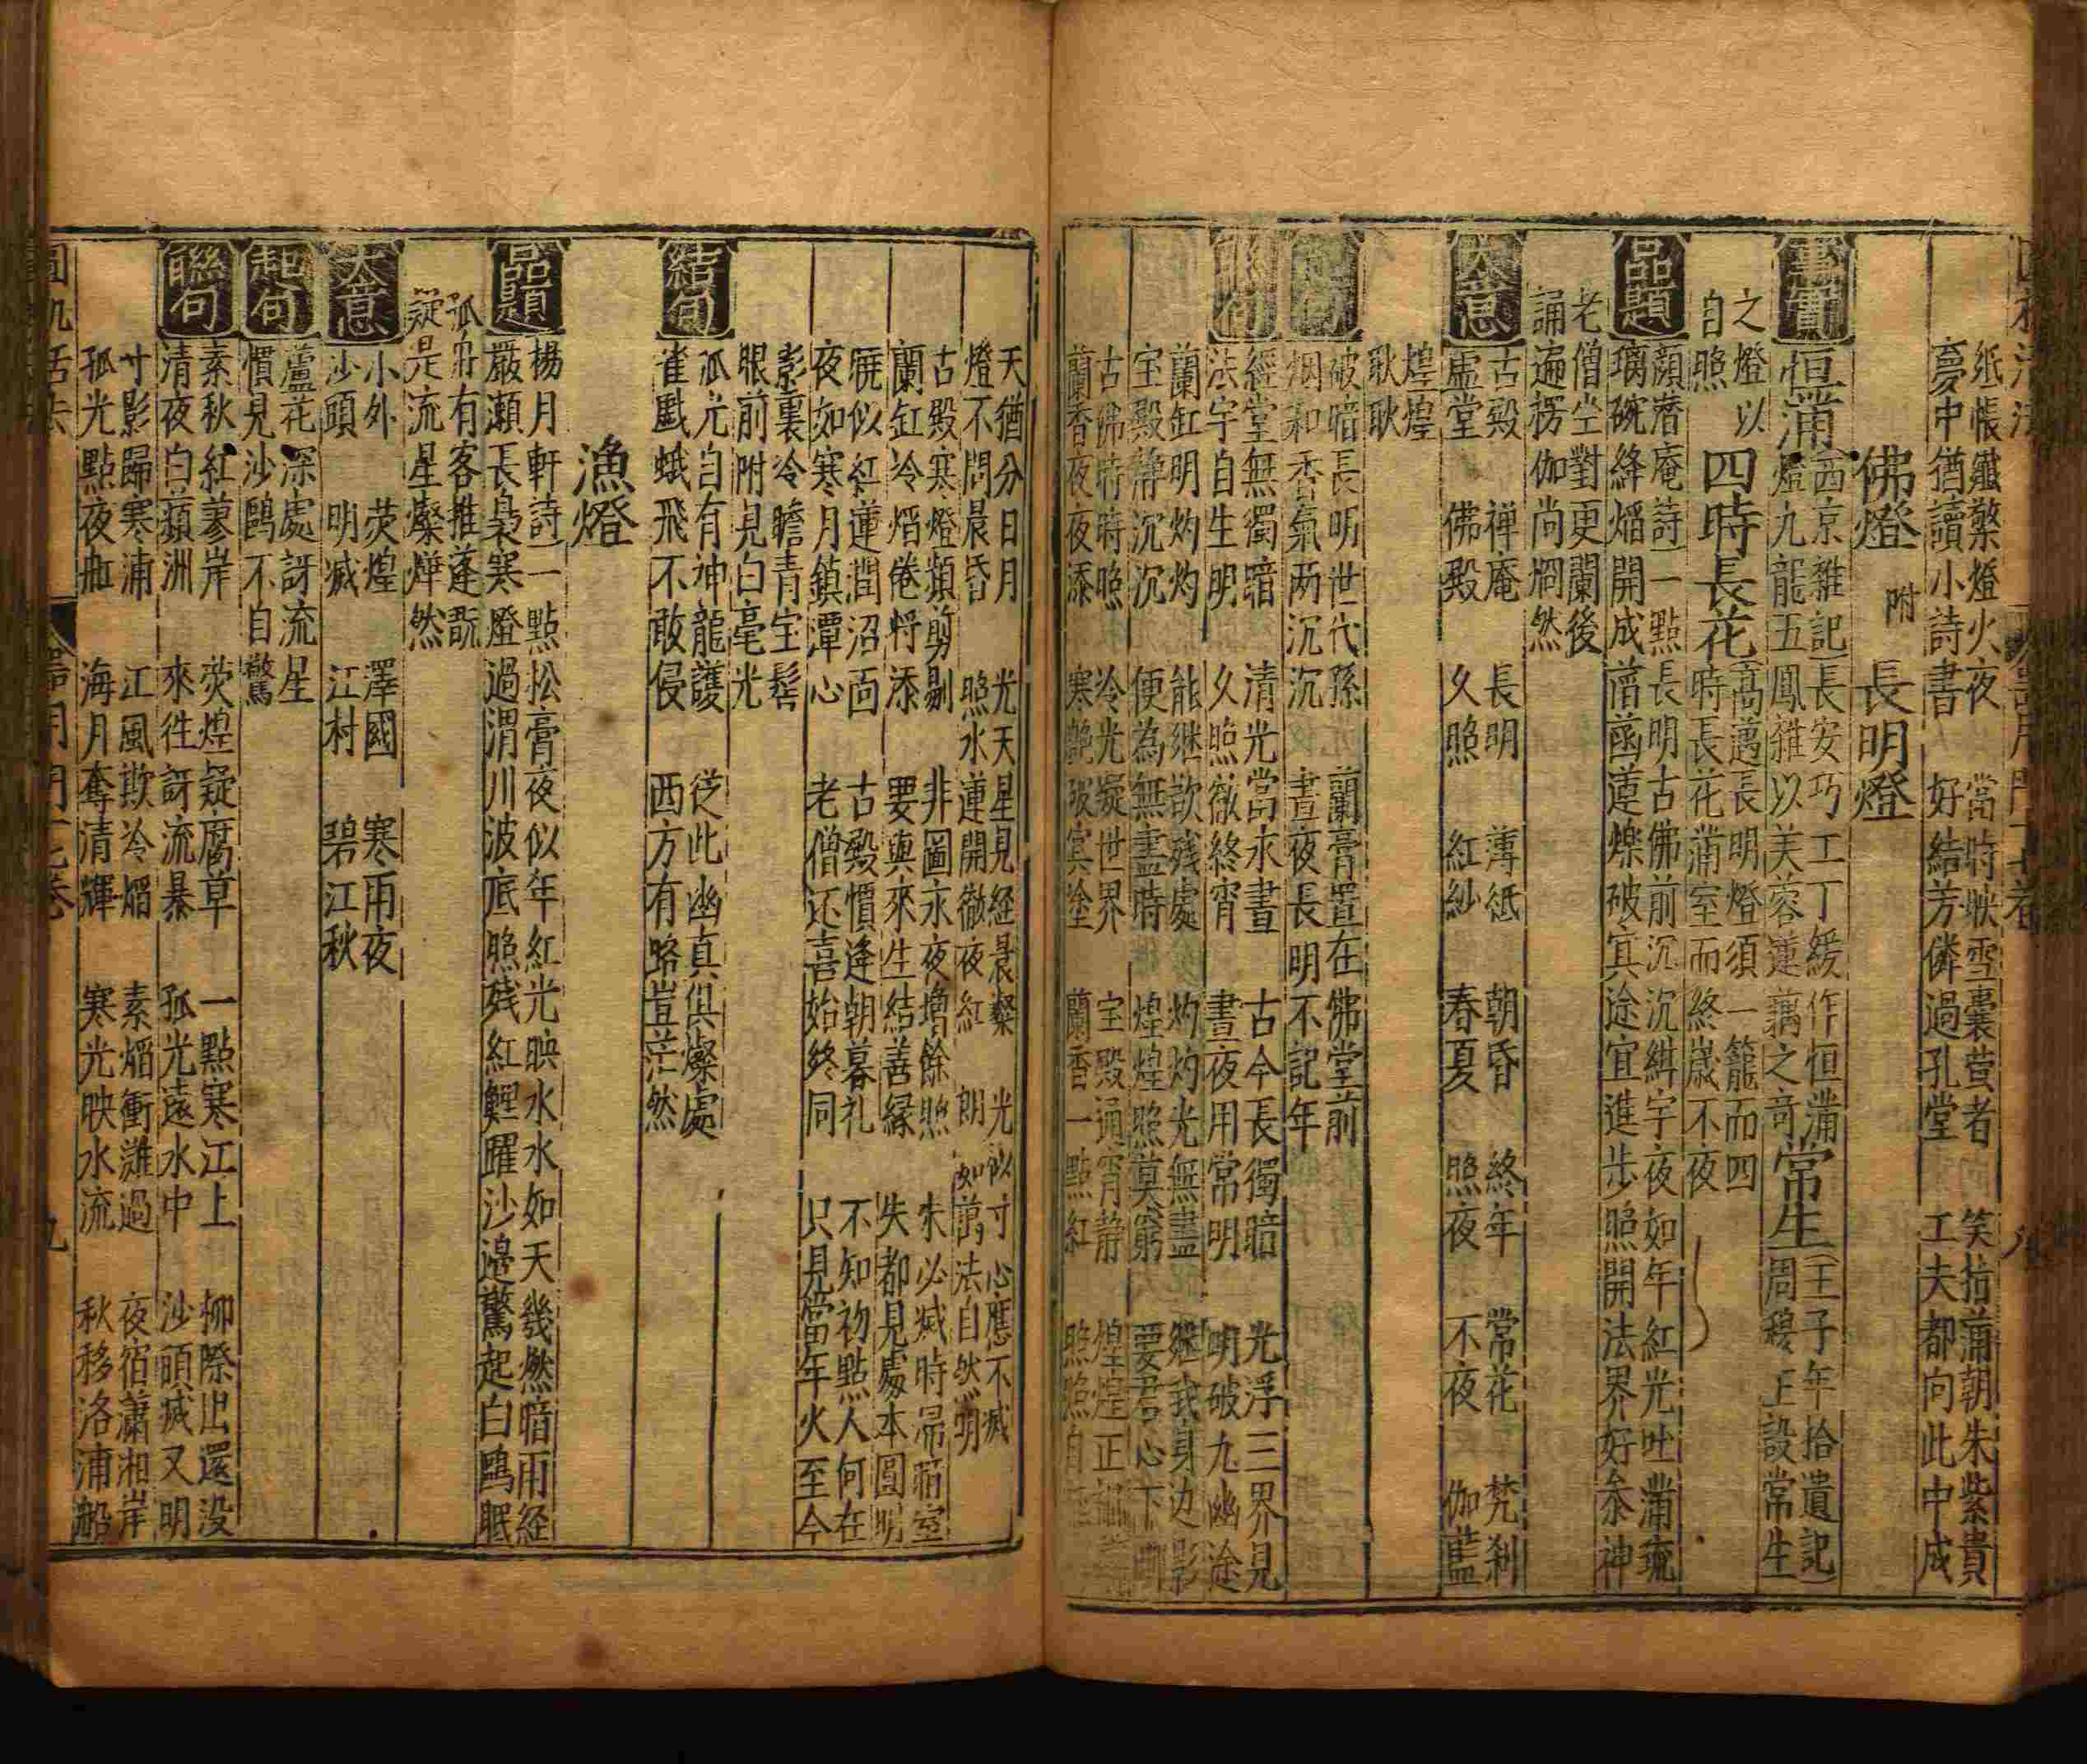 紙帳繼檠燈火夜　當時映雪囊萤者　笑拈蒲朝朱紫貴
夢中猶讀小詩書　好結芳隣過孔堂　工夫都向此中成
佛燈　附　長明燈
事實
恒蒲
西京雜記長安巧工丁緩作恒蒲
燈九龍五鳳雜以芙蓉蓮藕之奇
常生
王子年拾遺記
周穆王設常生
之燈以
自照
四時長花
高邁長明燈須一籠而四
時長花蒲室而終歲不夜
品題
顔潛庵詩一點長明古佛前沉沉紺宇夜如年紅光吐蒲琉
璃碗絳焰開成菡萏蓮爍破寘途宜進步照開法界好參神
老僧坐對更闌後
誦遍楞伽尚炯然
大意
古殿　禅庵　長明　薄紙　朝昏　終年　常花　梵刹
虛堂　佛殿　久照　紅紗　春夏　照夜　不夜　伽藍
煌煌
耿耿
起句
破暗長明世代孫　蘭膏置在佛堂前
烟和香氣两沉沉　晝夜長明不記年
聯句
經堂無獨暗　清光當永晝　古今長獨暗　光浮三界見
法宇自生明　久照徹終宵　晝夜用常明　明破九幽途
蘭缸明灼灼　能继欲残處　灼灼光無盡　继我身边影
宝殿静沉沉　便為無盡時　煌煌照莫窮　要君心下明
古佛時時照　冷光凝世界　宝殿通宵静
蘭香夜夜添　寒艷破寘塗　蘭香一點紅
天猶分日月　光天星見経㫷粲　光似寸心應不滅
燈不問晨昏　照水蓮開徹夜紅　朗如萬法自然明
古殿寒燈頻剪剔　非圖永夜增餘照　朱必滅時帚蒲室
蘭缸冷焰倦将添　要與來生結善縁　失都見處本圓明
暁似紅蓮開沼面　古殿慣逢朝暮礼　不知初點人何在
夜如寒月鎮潭心　老僧还喜始終同　只見當年火至今
影裏冷瞻青宝髻
眼前附見白毫光
結句
孤光自有神龍護　従此幽真俱燦處
雀䑕蛾飛不敢侵　西方有路豈茫然
漁燈
品題
楊月軒詩一點松膏夜似年紅光映水水如天幾燃暗雨経
嚴瀬長裊寒燈過渭川波底照残紅鯉躍沙邊驚起白鷗眠
孤舟有客推蓬翫
疑是流星燦燁然
大意
小外　荧煌　澤國　寒雨夜
沙頭　明滅　江村　碧江秋
起句
蘆花深處訝流星
慣見沙鷗不自驚
聯句
素秋紅蓼岸　荧煌疑腐草　一點寒江上　柳際出還没
清夜白蘋洲　來徃訝流暴　孤光遠水中　沙頭滅又明
寸影歸寒浦　江風欺冷焰　素焰衝灘過　夜宿瀟湘岸
孤光點夜舡　海月奪清輝　寒光映水流　秋移洛浦船
圓機活法　器用門十七卷　九